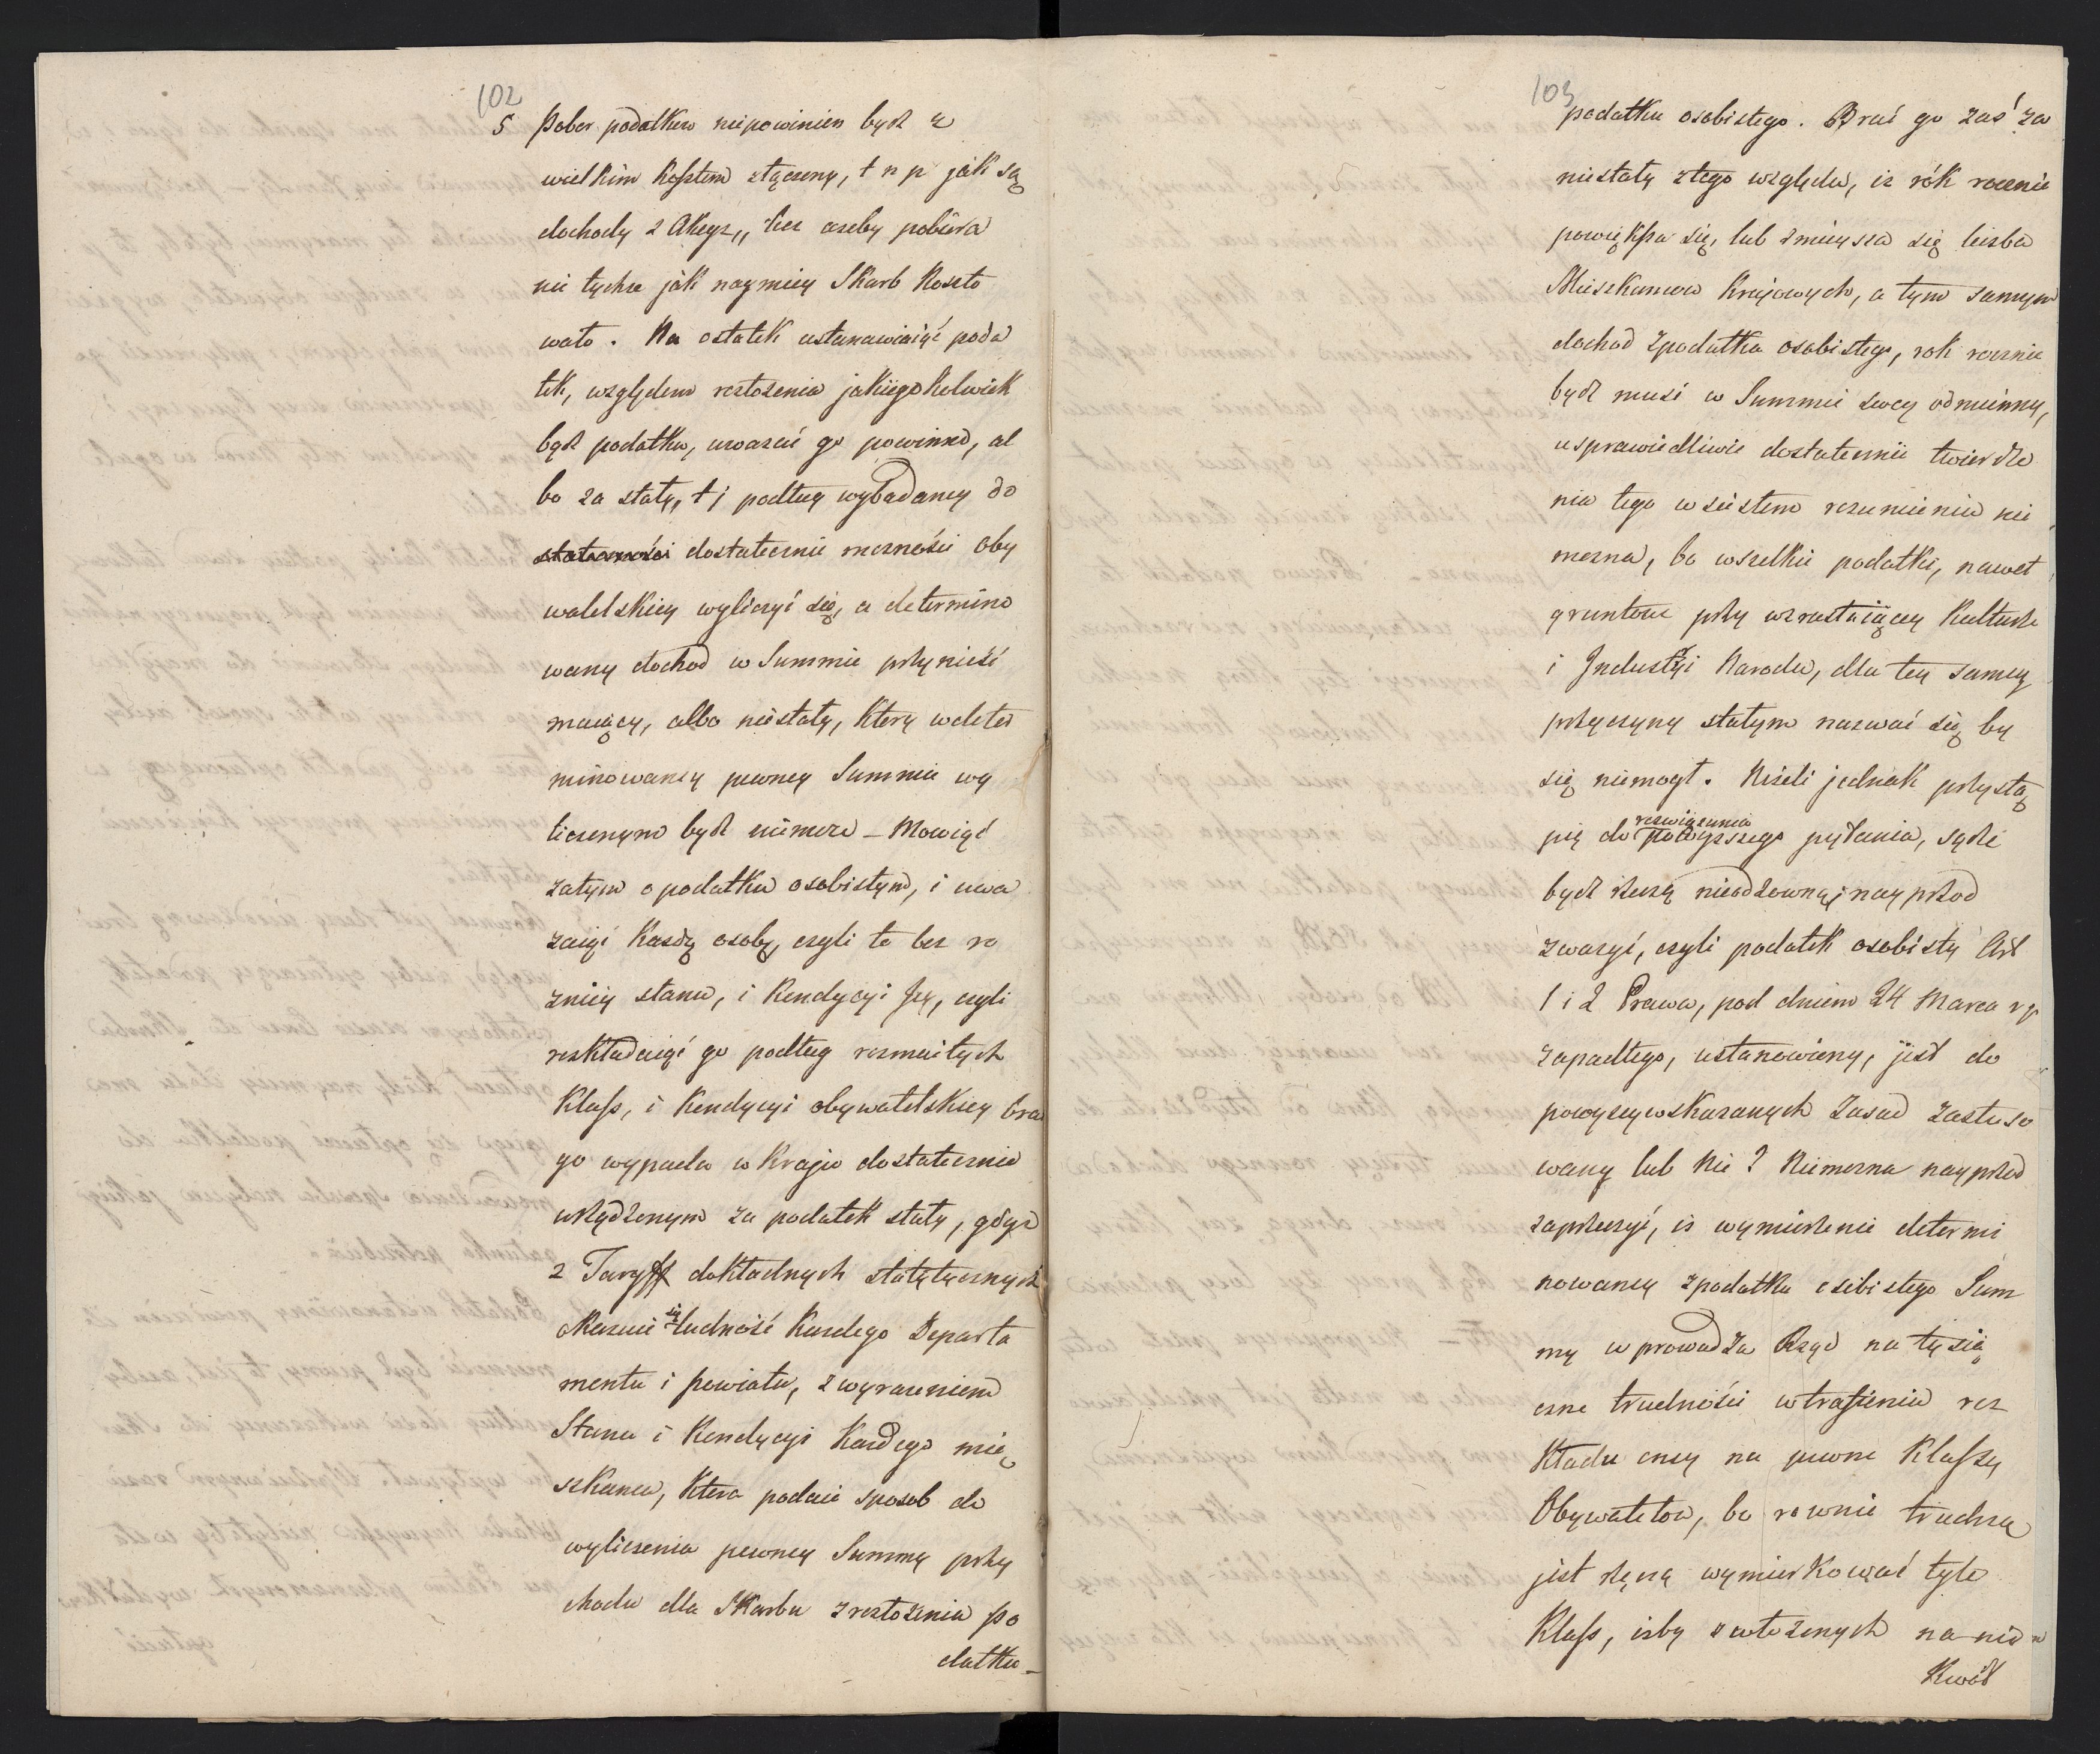 102
5 Pobor podatkow niepowinien bydź z
wielkim kosztem złączony, t n p jak są
dochody z Akcyz,, lecz ażeby pobiera
nie tychże jak naymniey Skarb koszto
wało. Na ostatek ustanawiaiąć poda
tek, względem rozłożenia jakiegokolwiek
bądź podatku, uważać go powinno, al
bo za stały, t j podług wybadaney do
stateczności dostatecznie możności oby
watelskiey wyliczyć się, a determino
wany dochod w Summie przynieść
maiący, albo niestały, ktory w deter
minowaney pewney Summie wy
liczonym bydź niemoże – Mowiąć
zatym o podatku osobistym, i uwa
żaiąć każdą osobę, czyli to bez ro
żnicy stanu, i kondycyi Jey, czyli
rozkładaiąć go podług rozmaitych
Klass, i kondycyi obywatelskiey brać
go wypada w kraju dostatecznie
urządzonym za podatek stały, gdyż
z Taryff dokładnych statytycznych
okazuie się ludność każdego Departa
mentu i powiatu, z wyrażeniem
Stanu i Kondycyi każdego mie
szkańca, ktora podaie sposob do
wyliczenia pewney Summy przy
chodu dla Skarbu z rozłożenia po
datku –
103
podatku osobistego. Brać go zaś za
niestały z tego względu, iż rók rocznie
powiększa się, lub zmieysza się liczba
Mieszkancow krajowych, a tym samym
dochod z podatku osobistego, rok rocznie
bydź musi w Summie swey odmienny,
usprawiedliwić dostatecznie twierdze
nia tego w scisłem rozumieniu nie
można, bo wszelkie podatki, nawet
gruntowe przy wzrastaiącey Kulturze
i Industryi Narodu, dla tey samey
przyczyny stałym nazwać się by
się niemogł. Niżeli jednak przystą
pię do rozwiązania powyższego pytania, sądzę
bydź rzeczą nieodzowną, nayprzod
zważyć, czyli podatek osobisty Art
1 i 2 Prawa, pod dniem 24 Marca r p
zapadłego, ustanowiony, jest do
powyżey wskazanych Zasad zastoso
wany lub Nie? Niemożna nayprzod
zaprzeczyć, iż wymierzenie determi
nowaney z podatku osobistego Sum
my wprowadza Rząd na tysią
czne trudności w trafieniu roz
kładu oney na pewne Klassy
Obywatelow, bo rownie trudną
jest rzeczą wymiarkować tyle
Klass, iżby z włożonych na nie
Kwot